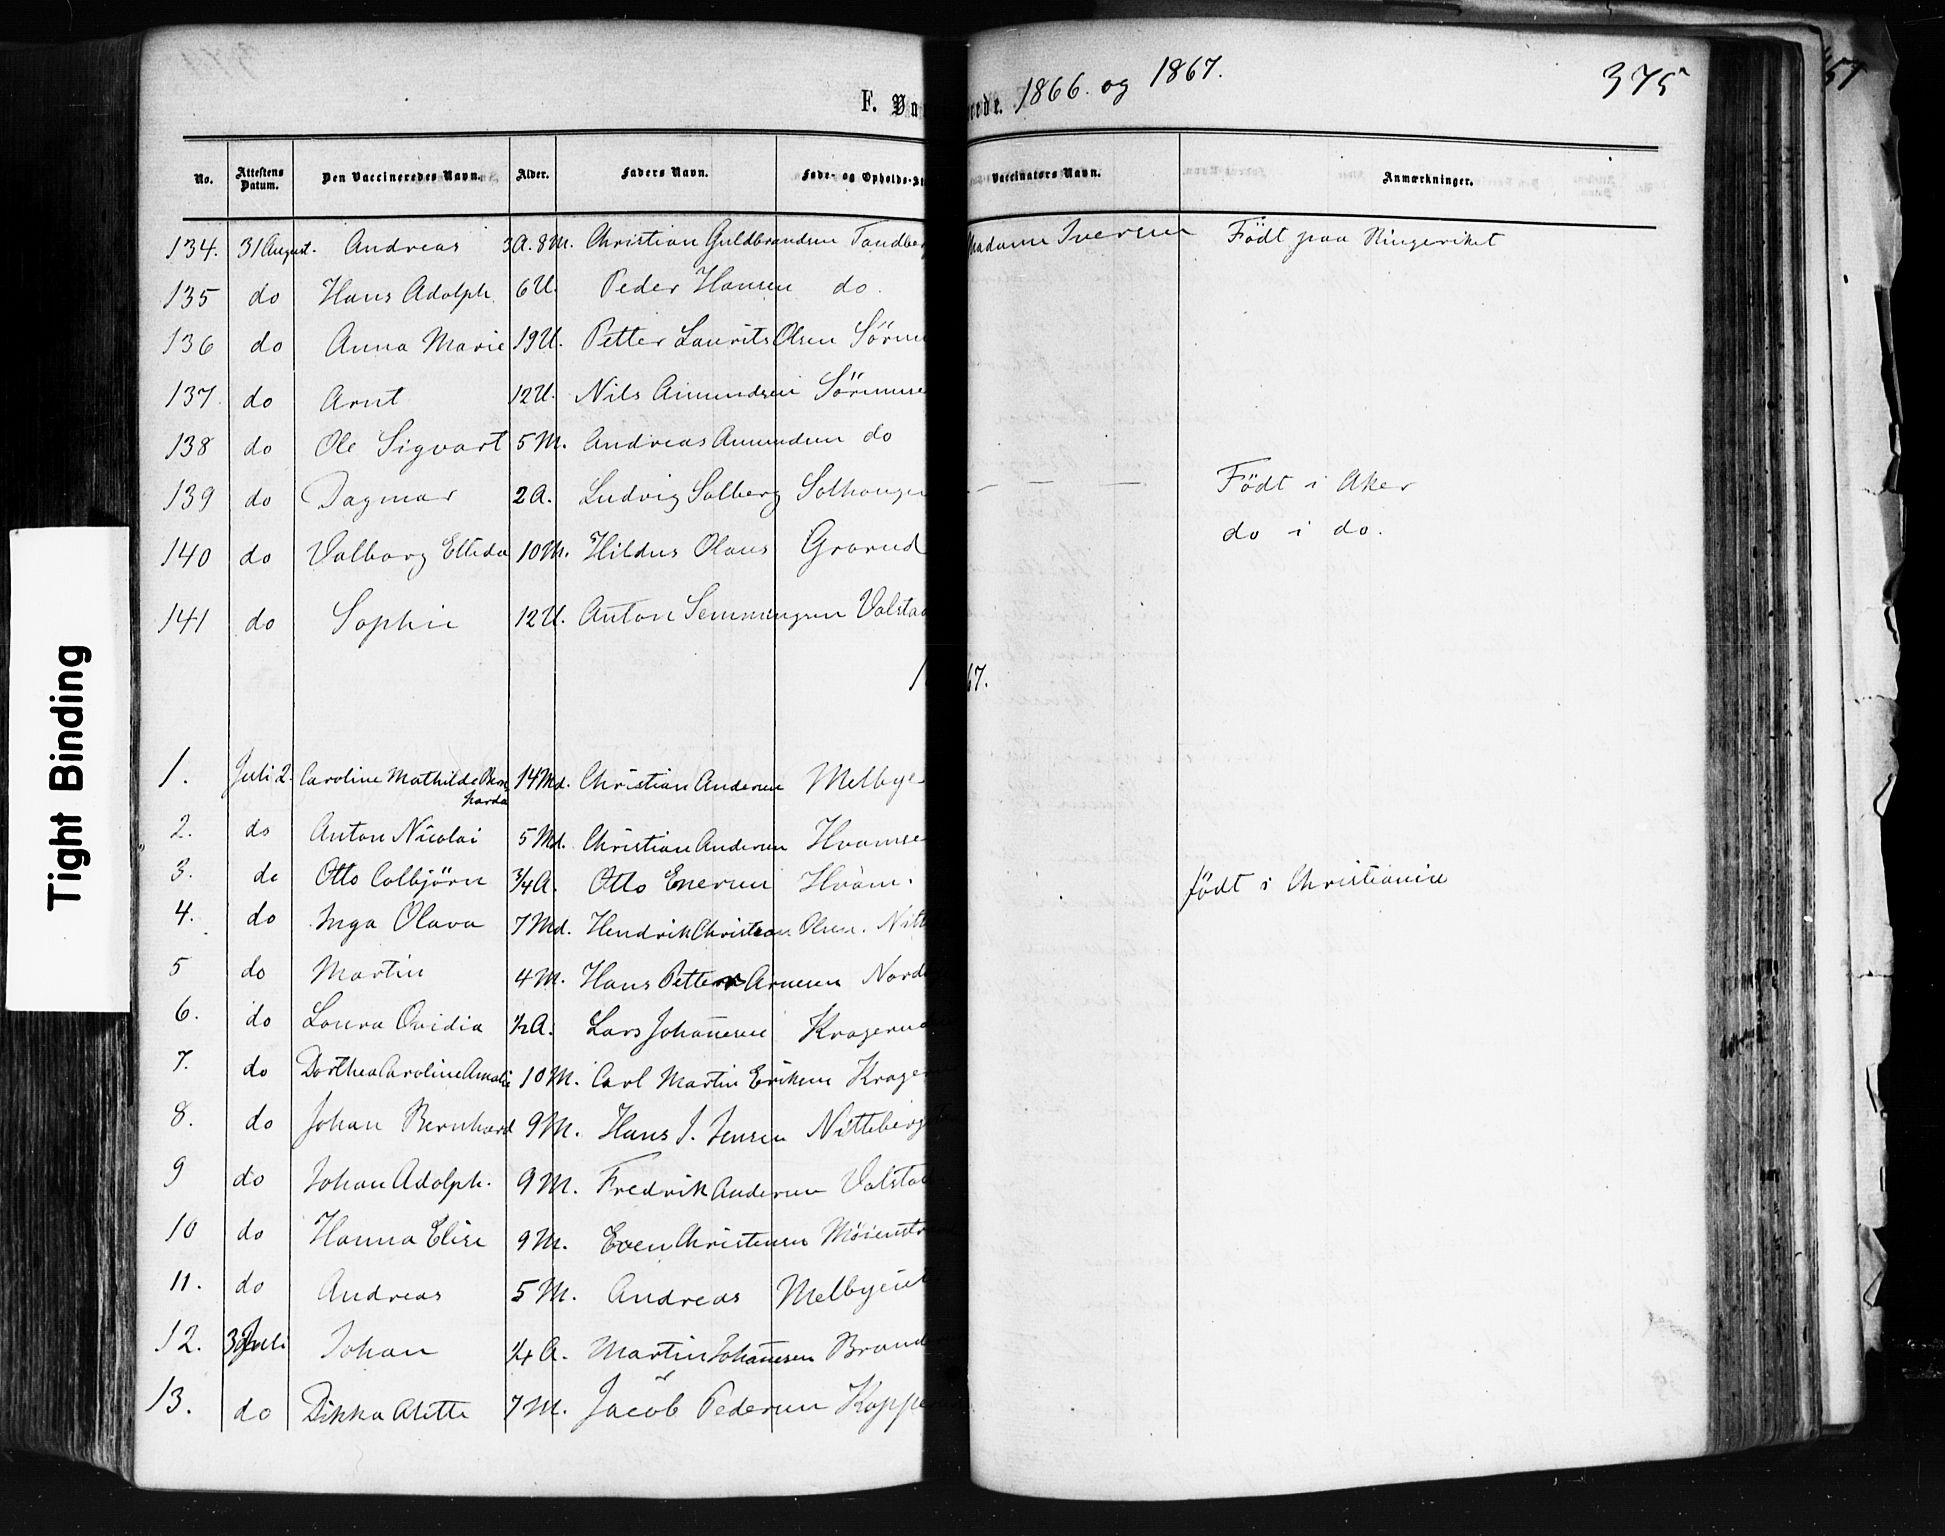 F. Va rede. 1866. og 1867. 375
No. Attestens Datum. Den Vaccineredes Navn. Alder. Faders Navn. Føde- og Opholds-St Vaccinators Navn. Anmærkninger.
134. 31 August. Andreas 3A. 8M. Christian Guldbrandsen Tandber Madame Iversen Födt paa Ringeriket
135 do Hans Adolph 6U. Peder Hansen do.
136 do Anna Marie 19U. Petter Laurits Olsen Sörum
137 do Arnt 12U. Nils Amundsen Sörumse
138 do Ole Sigvart 5M. Andreas Amundsen do
139 do Dagmar 2A. Ludvig Solberg Solhaugen — — — Födt i Aker
140 do Valborg Ellida 10M. Hildus Olaus Grorud do i do.
141 do Sophie 12U. Anton Semmingsen Valstad
1 67.
1. Juli 2. Caroline Mathilde Bern-
harda 14Md. Christian Andersen Melbye
2. do Anton Nicolai 5Md. Christian Andersen Hvamse
3. do Otto Colbjörn 3/4A. Otto Enersen Hvam. födt i Christiania
4. do Inga Olava 7Md. Hendrik Christian Olsen. Nitt
5 do Martin 4M. Hans Petter Arnesen Norde
6. do Laura Ovidia 1/2A. Lars Johannesen Kragerud
7. do Dorthea Caroline Amalie 10M. Carl Martin Eriksen Krage
8. do Johan Bernhard 9M. Hans J. Jensen Nitteberg
9 do Johan Adolph. 9M. Fredrik Andersen Valstad
10 do Hanna Elise 9M. Even Christensen
11. do Andreas 5M. Andreas Melbyeie
12. 3 Juli Johan 1/4 A. Martin Johannesen Brand
13. do Dikka Alette 7M. Jacob Pedersen Kopper
Tight Binding
57